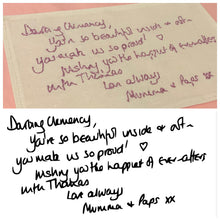 Darling Clemency,
you're so beautiful inside & out -
you make us so proud! ♡
wishing you the happiest of ever-afters
with Thomas
Love always
Mumma & Paps xx
Darling Clemency,
you're so beautiful inside & out -
you make us so proud! ♡
wishing you the happiest of ever-afters
with Thomas
Love always
Mumma & Paps xx